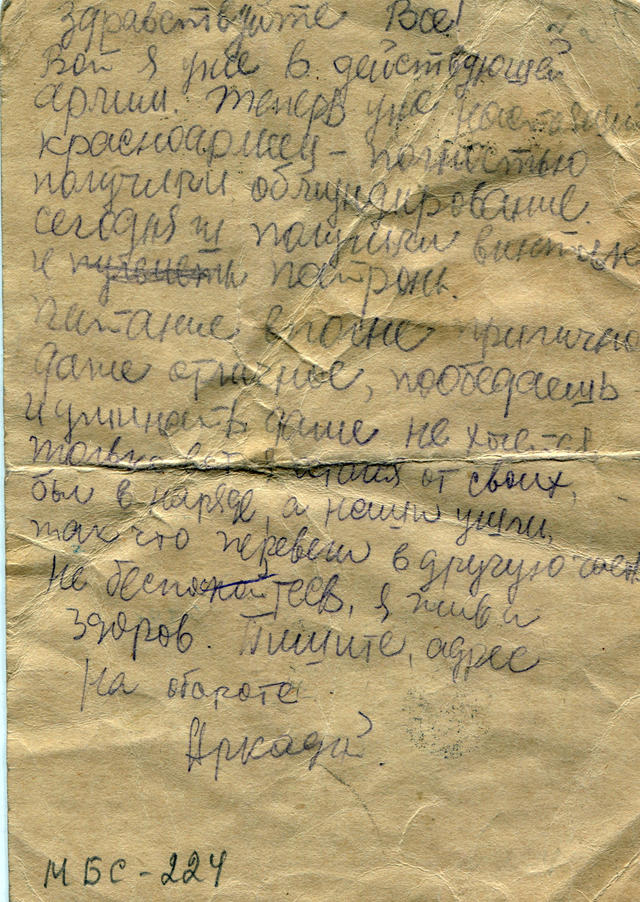 Здравствуйте Все!
Вот я уже в действующей
армии. Теперь уже настоящий
красноармеец - полностью
получили обмундирование.
сегодня получили винтовк
и патроны.
Питание вполне прилично
даже отличное, пообедаешь
и ужинать даже не хочется
только вот отстал от своих,
был в наряде, а наши ушли,
так что перевели в другую част
не беспокойтесь, я жив и
здоров. Пишите, адрес
на обороте.
Аркадий
МБС-224